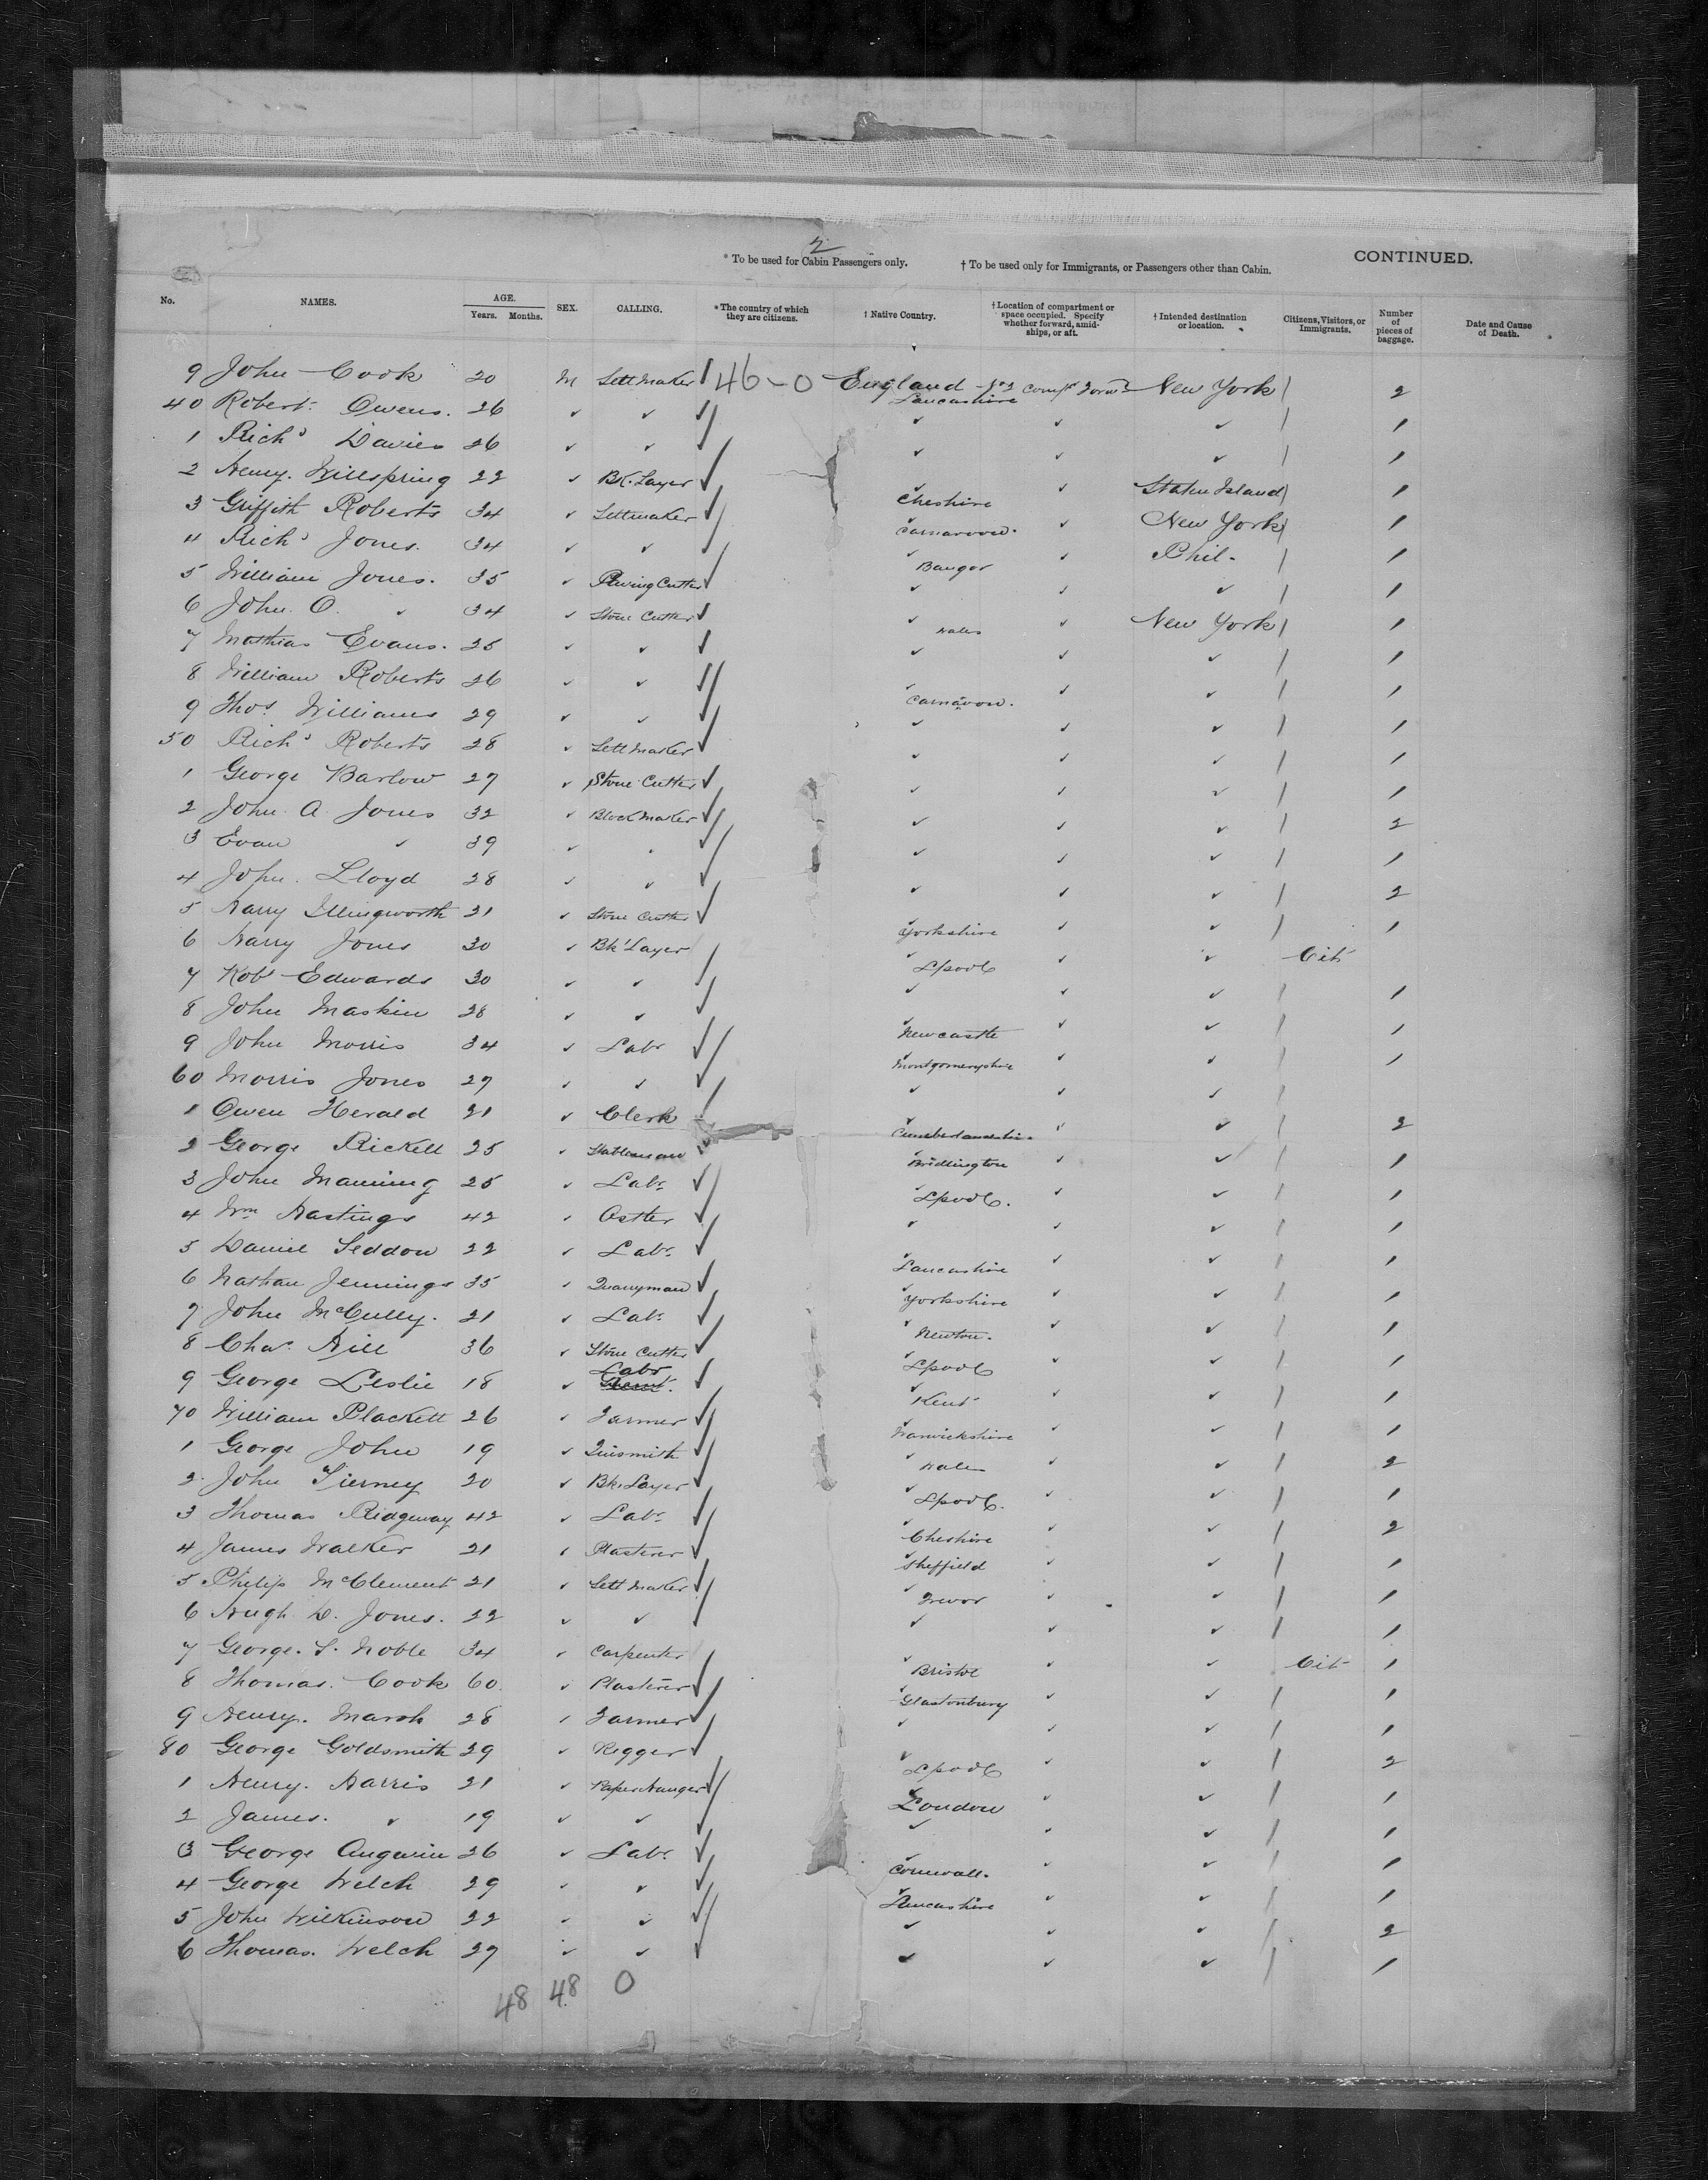 2
* To be used for Cabin Passengers only. † To be used only for Immigrants, or Passengers other than Cabin. CONTINUED.
No. NAMES. AGE. Years. Months. SEX. CALLING. * The country of which they are citizens. † Native Country. † Location of compartment or space occupied. Specify whether forward, amidships, or aft. † Intended destination or location. Citizens, Visitors, or Immigrants. Number of pieces of baggage. Date and Cause of Death.
9 John Cook 20 M Sett Maker 46-0 England Lancashire New York / 2
40 Robert Owens. 26 " " " " " / 1
1 Richd Davies 26 " " " " " / 1
2 Henry Willspring 22 " Bk. Layer " Cheshire " Staten Island / 1
3 Griffith Roberts 34 " Settmaker " Carnarvon. " New York / 1
4 Richd Jones. 34 " " " Bangor " Phil. / 1
5 William Jones. 35 " Paving Cutter " " " / 1
6 John O. " 34 " Stone Cutter " Wales " New York / 1
7 Mathias Evans. 25 " " " " " / 1
8 William Roberts 26 " " " Carnavon. " " / 1
9 Thos. Williams 29 " " " " " / 1
50 Richd Roberts 28 " Sett Maker " " " / 1
1 George Barlow 27 " Stone Cutter " " " / 1
2 John A. Jones 32 " Block Maker " " " / 2
3 Evan " 39 " " " " " / 1
4 John Lloyd 28 " " " " " / 2
5 Harry Illingworth 21 " Stone Cutter " Yorkshire " " / 1
6 Harry Jones 30 " Bk Layer " Lpool " " Cit
7 Robt Edwards 30 " " " " " / 1
8 John Maskin 28 " " " Newcastle " " / 1
9 John Morris 34 " Labr " Montgomeryshire " " / 1
60 Morris Jones 27 " " " " " /
1 Owen Herald 21 " Clerk " " " / 2
2 George Rickell 25 " Stableman " Bridlington " " / 1
3 John Manning 25 " Labr " Lpool. " " / 1
4 Wm Hastings 42 " Ostler " " " / 1
5 Daniel Seddon 22 " Labr " Lancashire " " / 1
6 Nathan Jennings 35 " Quarryman " Yorkshire " " / 1
7 John McCully. 21 " Labr " Newton. " " / 1
8 Chas. Hill 36 " Stone Cutter " Lpool " " / 1
9 George Leslie 18 " Labr " Kent " " / 1
70 William Plackett 26 " Farmer " Warwickshire " " / 1
1 George John 19 " Tinsmith " Wales " " / 2
2 John Tierney 20 " Bk. Layer " Lpool. " " / 1
3 Thomas Ridgeway 42 " Labr " Cheshire " " / 2
4 James Walker 21 " Plasterer " Sheffield " " / 1
5 Philip McClement 21 " Sett Maker " Trevor " " / 1
6 Hugh D. Jones. 22 " " " " " / 1
7 George. S. Noble 34 " Carpenter " Bristol " " Cit 1
8 Thomas. Cook 60. " Plasterer " Glastonbury " " / 1
9 Henry. Marsh 28 " Farmer " " " / 1
80 George Goldsmith 29 " Rigger " Lpool " " / 2
1 Henry. Harris 21 " Paper Hanger " London " " / 1
2 James. " 19 " " " " " / 1
3 George Angwin 26 " Labr " Cornwall. " " / 1
4 George Welch 29 " " " Lancashire " " / 1
5 John Wilkinson 22 " " " " " / 2
6 Thomas. Welch 27 " " " " " / 1
48 48 0